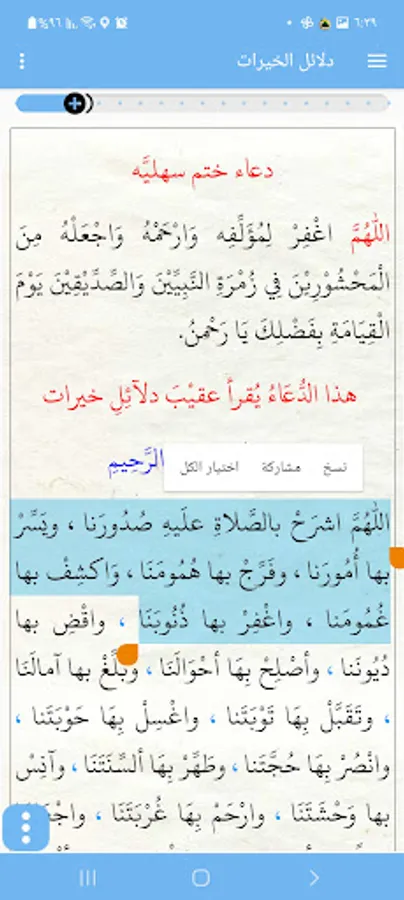 ٦:٢٩
٩٦%
دلائل الخيرات
دعاء ختم سهليَّه
اللَّهُمَّ اغْفِرْ لِمُؤَلِّفِه وَارْحَمْهُ وَاجْعَلْهُ مِنَ
الْمَحْشُورِيْنَ فِي زُمْرَةِ النَّبِيِّيْنَ وَالصِّدِّيْقِيْنَ يَوْمَ
الْقِيَامَةِ بِفَضْلِكَ يَا رَحْمٰنُ.
هذا الدُّعَاءُ يُقرأ عقيْبَ دلآئِلِ خيرات
الرَّحِيمِ
نسخ مشاركة اختيار الكل
اللَّهُمَّ اشرَحْ بالصَّلاةِ علَيهِ صُدُورَنا ، ويَسِّرْ
بها أُمُورَنا ، وفَرِّجْ بها هُمُومَنَا ، وَاكشِفْ بها
غُمُومَنا ، واغْفِرْ بها ذُنُوبَنَا ، واقْضِ بها
دُيُونَنا ، وأصْلِحْ بِهَا أحْوَالَنَا ، وبَلِّغْ بها آمالَنَا
، وتَقَبَّلْ بِهَا تَوْبَتَنا ، واغْسِلْ بِهَا حَوْبَتَنا ،
وانْصُرْ بِهَا حُجَّتَنا ، وطَهِّرْ بِهَا ألسِّنَتَنَا ، وآنِسْ
بها وَحْشَتَنَا ، وارْحَمْ بِهَا غُرْبَتَنَا ،